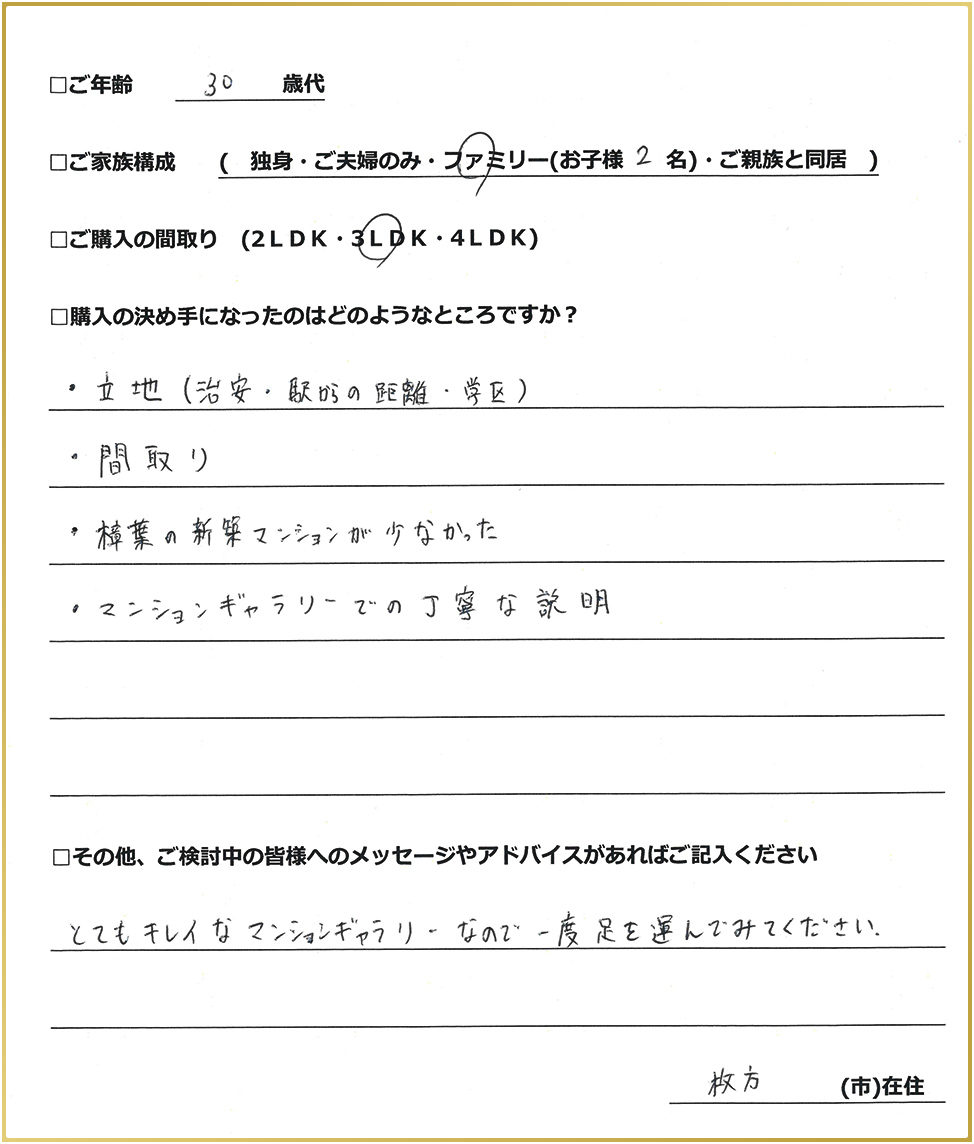 □ご年齢 30 歳代
□ご家族構成 ( 独身・ご夫婦のみ・ファミリー(お子様 2 名)・ご親族と同居 )
□ご購入の間取り (2LDK・3LDK・4LDK)
□購入の決め手になったのはどのようなところですか?
・立地(治安・駅からの距離・学区)
・間取り
・樟葉の新築マンションが少なかった
・マンションギャラリーでの丁寧な説明
□その他、ご検討中の皆様へのメッセージやアドバイスがあればご記入ください
とてもキレイなマンションギャラリーなので一度足を運んでみてください.
枚方 (市)在住